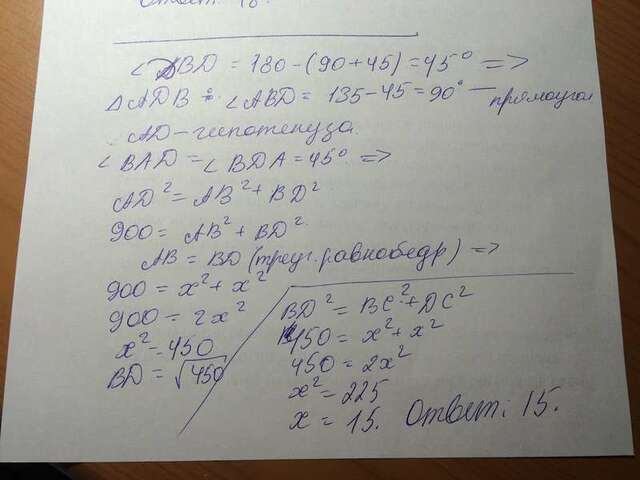 Ответ: 18.
∠ DBD = 180 - (90 + 45) = 45° =>
△ADB : ∠ABD = 135 - 45 = 90° — прямоугол
AD - гипотенуза.
∠ BAD = ∠ BDA = 45° =>
AD² = AB² + BD²
900 = AB² + BD².
AB = BD (треуг. равнобедр) =>
900 = x² + x²
900 = 2x²
x² = 450
BD = √450
BD² = BC² + DC²
450 = x² + x²
450 = 2x²
x² = 225
x = 15. Ответ: 15.